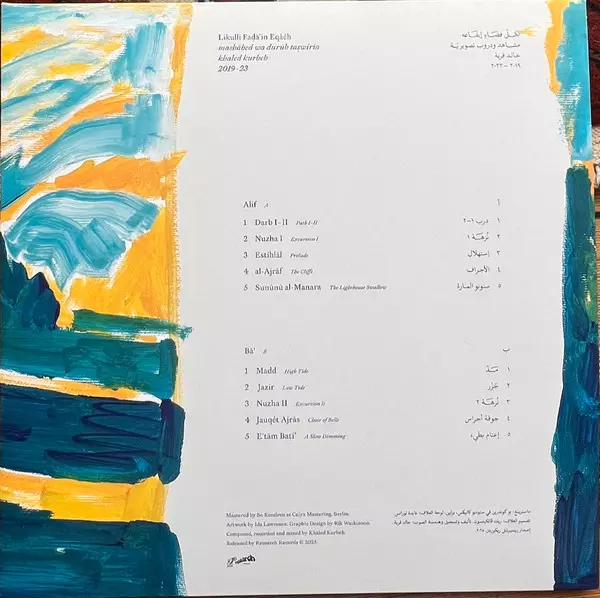 Likulli Faḍā'in Eqáéh
mashāhed wa durūb taṣwīrīa
khaled kurbeh
2019-23
لكلّ فضاءٍ إيقاعه
مشاهد ودروب تصويريّة
خالد قربة
٢٠١٩ – ٢٠٢٣
Alif A
1 Darb I-II Path I-II
2 Nuzha I Excursion I
3 Estihlāl Prelude
4 al-Ajrāf The Cliffs
5 Sunūnū al-Manara The Lighouse Swallow
أ
١ درب ١-٢
٢ نُزهَة ١
٣ إستهلال
٤ الأجراف
٥ سنونو المنارة
Bā' B
1 Madd High Tide
2 Jazir Low Tide
3 Nuzha II Excursion II
4 Jauqét Ajrās Choir of Bells
5 E'tām Batī' A Slow Dimming
ب
١ مَدّ
٢ جَزْر
٣ نُزهَة ٢
٤ جوقة أجراس
٥ إعتام بطيء
Mastered by Bo Kondren at Calyx Mastering, Berlin.
Artwork by Ida Lawrence. Graphic Design by Rik Watkinson.
Composed, recorded and mixed by Khaled Kurbeh.
Released by Research Records © 2025.
Research